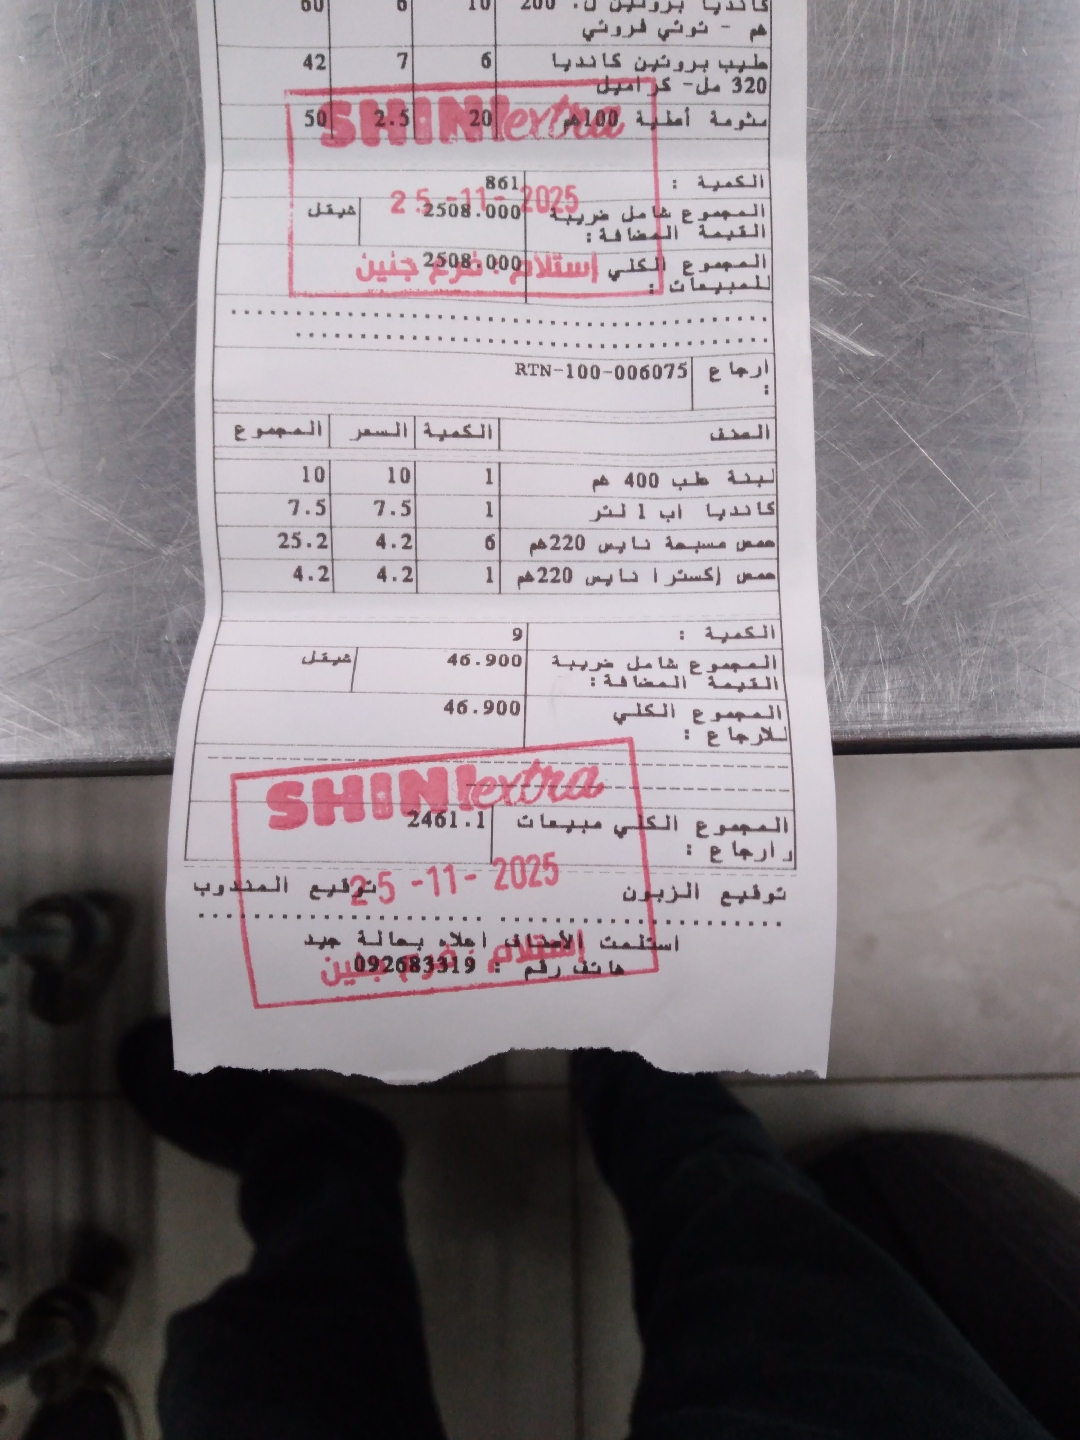 كانديا بروتين ل. 200 10 6 60
هم - توتي فروتي
حليب بروتين كانديا 6 7 42
320 مل- كراميل
مثومة أصلية 100هم 20 2.5 50
SHINI extra
الكمية : 861
25-11-2025
المجموع شامل ضريبة 2508.000 شيقل
القيمة المضافة:
المجموع الكلي 2508.000
للمبيعات :
إستلام . فرع جنين
ارجاع RTN-100-006075
:
الصنف الكمية السعر المجموع
لبنة طب 400 هم 1 10 10
كانديا اب 1 لتر 1 7.5 7.5
حمص مسبحة نايس 220هم 6 4.2 25.2
حمص إكسترا نايس 220هم 1 4.2 4.2
الكمية : 9
المجموع شامل ضريبة 46.900 شيقل
القيمة المضافة:
المجموع الكلي 46.900
للارجاع :
SHINI extra
المجموع الكلي مبيعات 2461.1
وارجاع :
25-11-2025
توقيع الزبون توقيع المندوب
استلمت الأصناف اعلاه بحالة جيد
إستلام . فرع جنين
هاتف رقم : 092683319